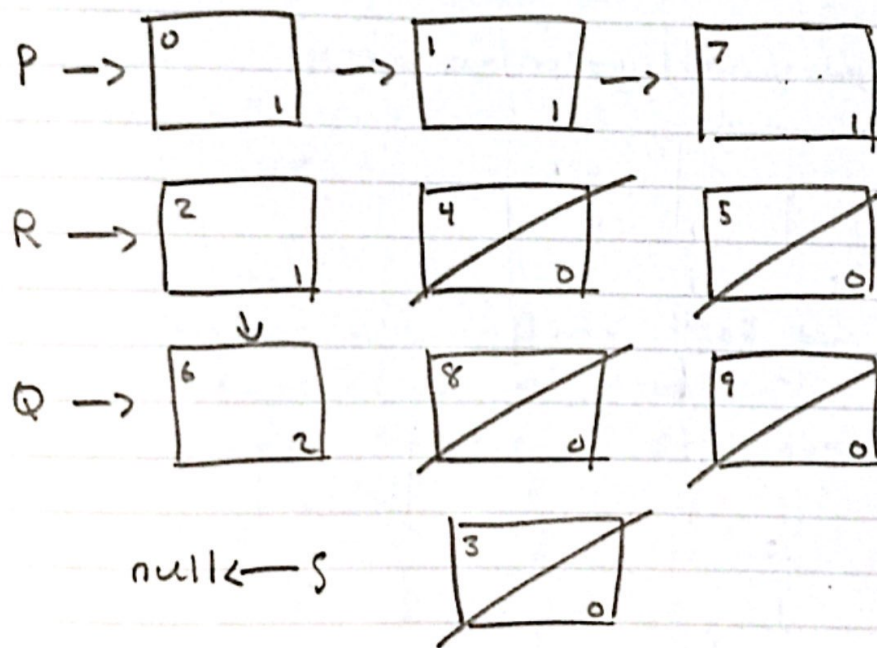 P → 0 1 → 1 1 → 7 1
R → 2 1 4 0 5 0
↓
Q → 6 2 8 0 9 0
null ← S 3 0